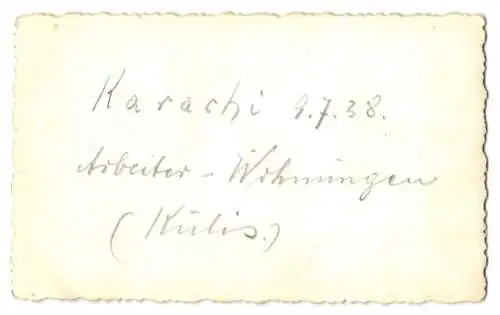 Karachi 9.7.38.
Arbeiter - Wohnungen
(Külis.)